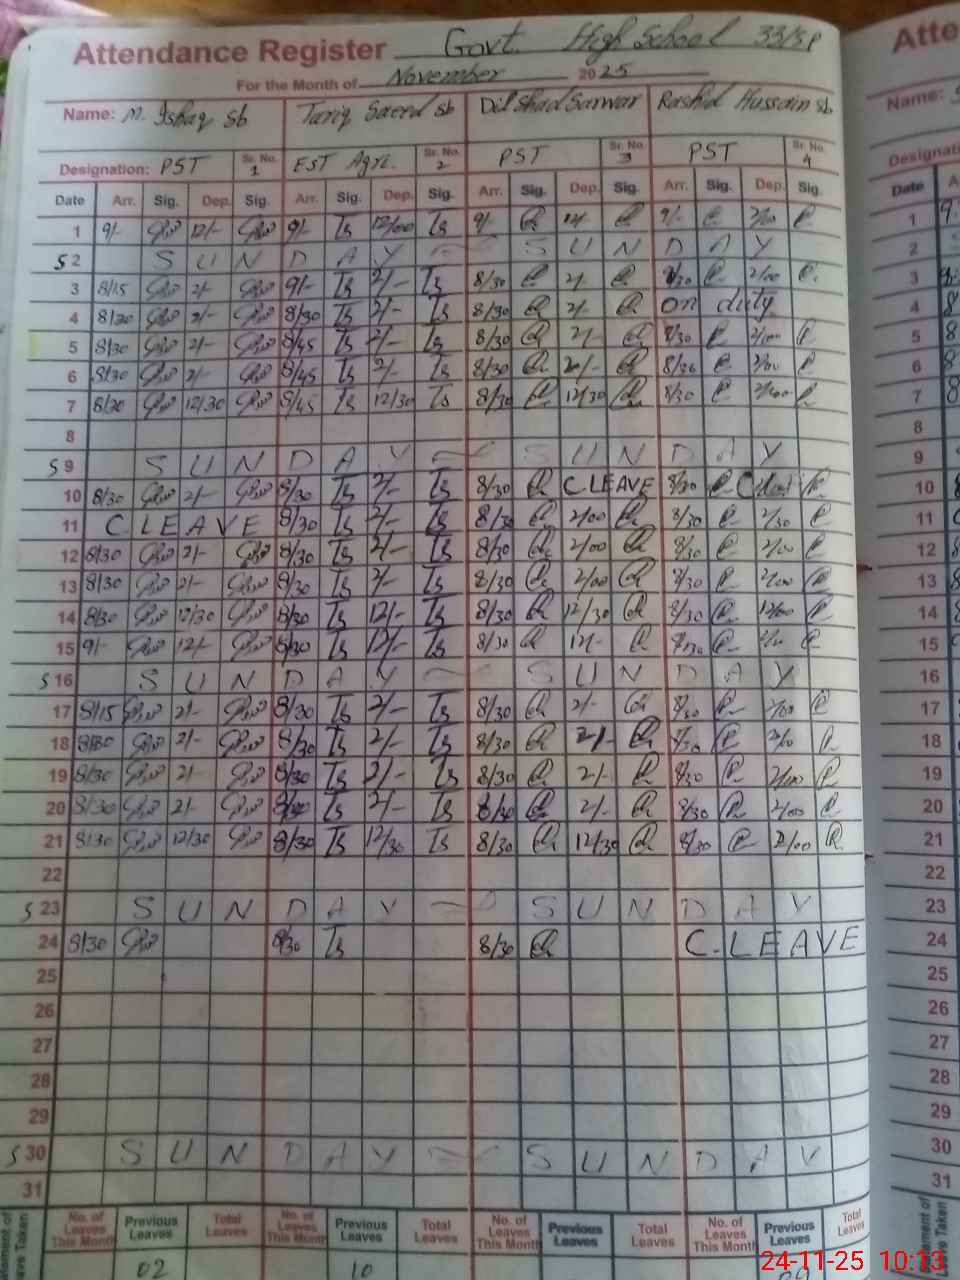 Attendance Register Govt. High School 33/SP
For the Month of November 2025
Name: M. Ishaq sb Tariq Saeed sb Dilshad Sarwar Rashid Hussain sb
Designation: PST Sr. No. 1 EST Agri. Sr. No. 2 PST Sr. No. 3 PST Sr. No. 4
Date Arr. Sig. Dep. Sig. Arr. Sig. Dep. Sig. Arr. Sig. Dep. Sig. Arr. Sig. Dep. Sig.
1 9/- 12/- 9/- Ts 12/00 Ts 9/- 12/- 9/- 2/00
S 2 S U N D A Y S U N D A Y
3 8/15 2/- 9/- Ts 2/- Ts 8/30 2/- 8/30 2/00
4 8/30 2/- 8/30 Ts 2/- Ts 8/30 2/- on duty
5 8/30 2/- 8/45 Ts 2/- Ts 8/30 2/- 8/30 2/00
6 8/30 2/- 8/45 Ts 2/- Ts 8/30 2/- 8/30 2/00
7 8/30 12/30 8/45 Ts 12/30 Ts 8/30 12/30 8/30 2/00
8
S 9 S U N D A Y S U N D A Y
10 8/30 2/- 8/30 Ts 2/- Ts 8/30 C LEAVE 8/30
11 C LEAVE 8/30 Ts 2/- Ts 8/30 2/00 8/30 2/30
12 8/30 2/- 8/30 Ts 2/- Ts 8/30 2/00 8/30 2/00
13 8/30 2/- 8/30 Ts 2/- Ts 8/30 2/00 8/30 2/00
14 8/30 12/30 8/30 Ts 12/- Ts 8/30 12/30 8/30 12/00
15 9/- 12/- 8/30 Ts 12/- Ts 8/30 12/- 8/30
S 16 S U N D A Y S U N D A Y
17 8/15 2/- 8/30 Ts 2/- Ts 8/30 2/- 8/30 2/00
18 8/30 2/- 8/30 Ts 2/- Ts 8/30 2/- 8/30 2/00
19 8/30 2/- 8/30 Ts 2/- Ts 8/30 2/- 8/30 2/00
20 8/30 2/- 8/30 Ts 2/- Ts 8/30 2/- 8/30 2/00
21 8/30 12/30 8/30 Ts 12/30 Ts 8/30 12/30 8/30 2/00
22
S 23 S U N D A Y S U N D A Y
24 8/30 8/30 Ts 8/30 C. LEAVE
25
26
27
28
29
S 30 S U N D A Y S U N D A Y
31
No. of Leaves This Month Previous Leaves Total Leaves No. of Leaves This Month Previous Leaves Total Leaves No. of Leaves This Month Previous Leaves Total Leaves No. of Leaves This Month Previous Leaves Total Leaves
02 10
24-11-25 10:13
Atte
Name:
Designati
Date A
1
2
3
4
5
6
7
8
9
10
11
12
13
14
15
16
17
18
19
20
21
22
23
24
25
26
27
28
29
30
31